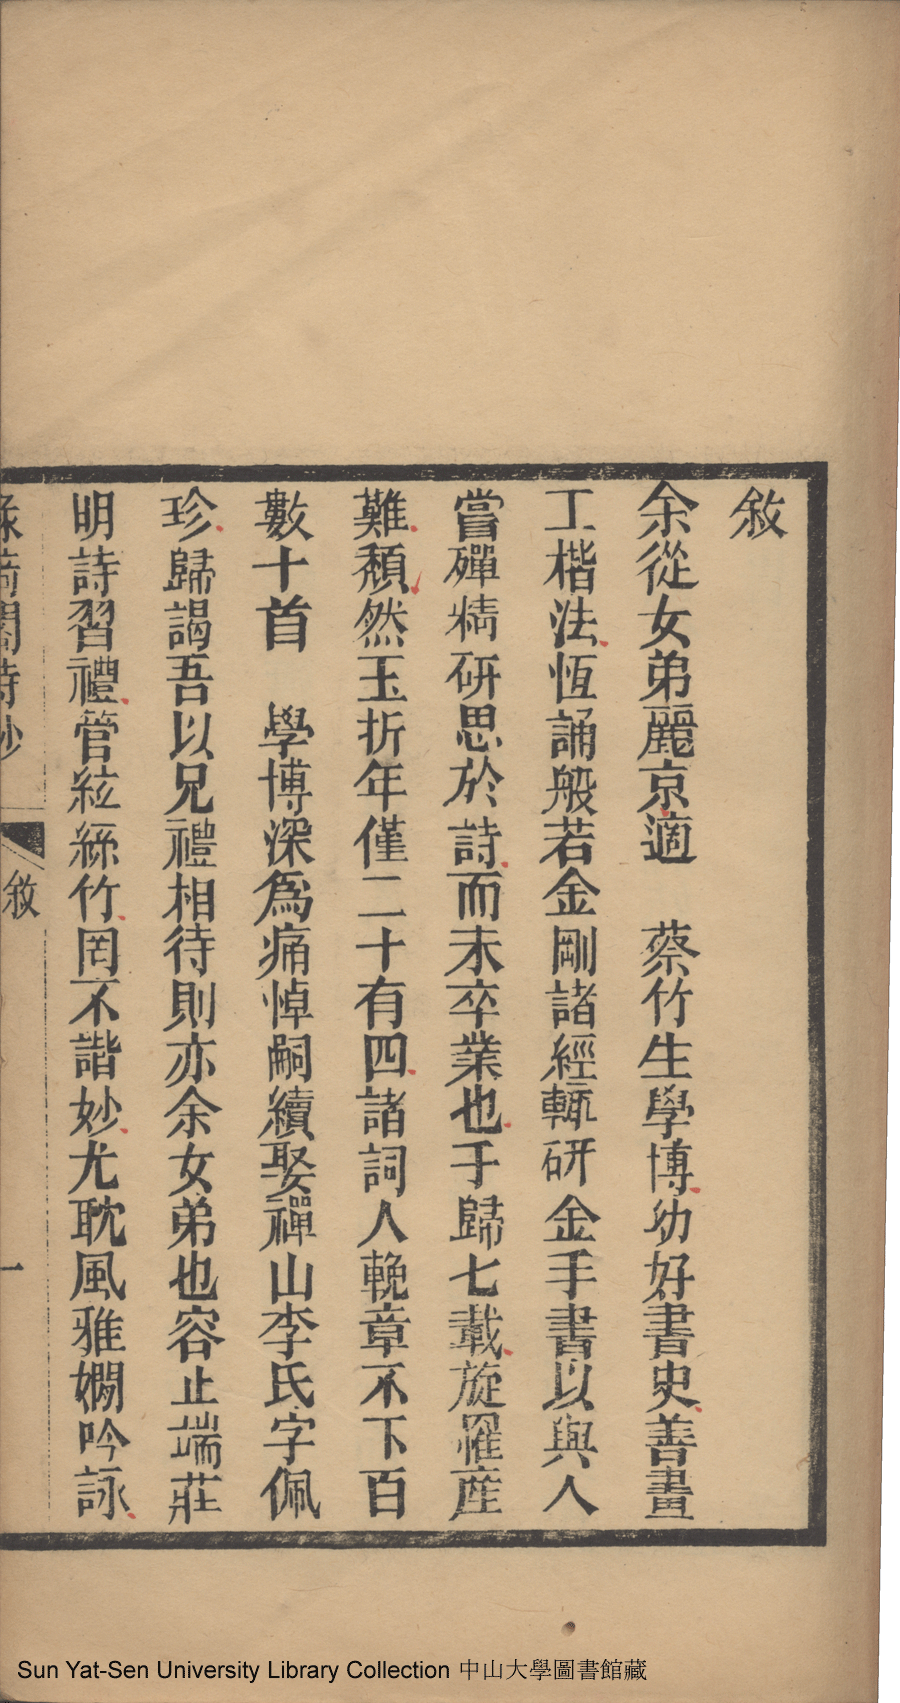 敘
余從女弟麗京適　蔡竹生學博幼好書史善畫
工楷法恆誦般若金剛諸經輒研金手書以與人
嘗殫精研思於詩而未卒業也于歸七載旋罹產
難頹然玉折年僅二十有四諸詞人輓章不下百
數十首　學博深為痛悼嗣續娶禪山李氏字佩
珍歸謁吾以兄禮相待則亦余女弟也容止端莊
明詩習禮管絃絲竹罔不諧妙尤耽風雅嫻吟詠
閣詩鈔
敘
一
Sun Yat-Sen University Library Collection 中山大學圖書館藏